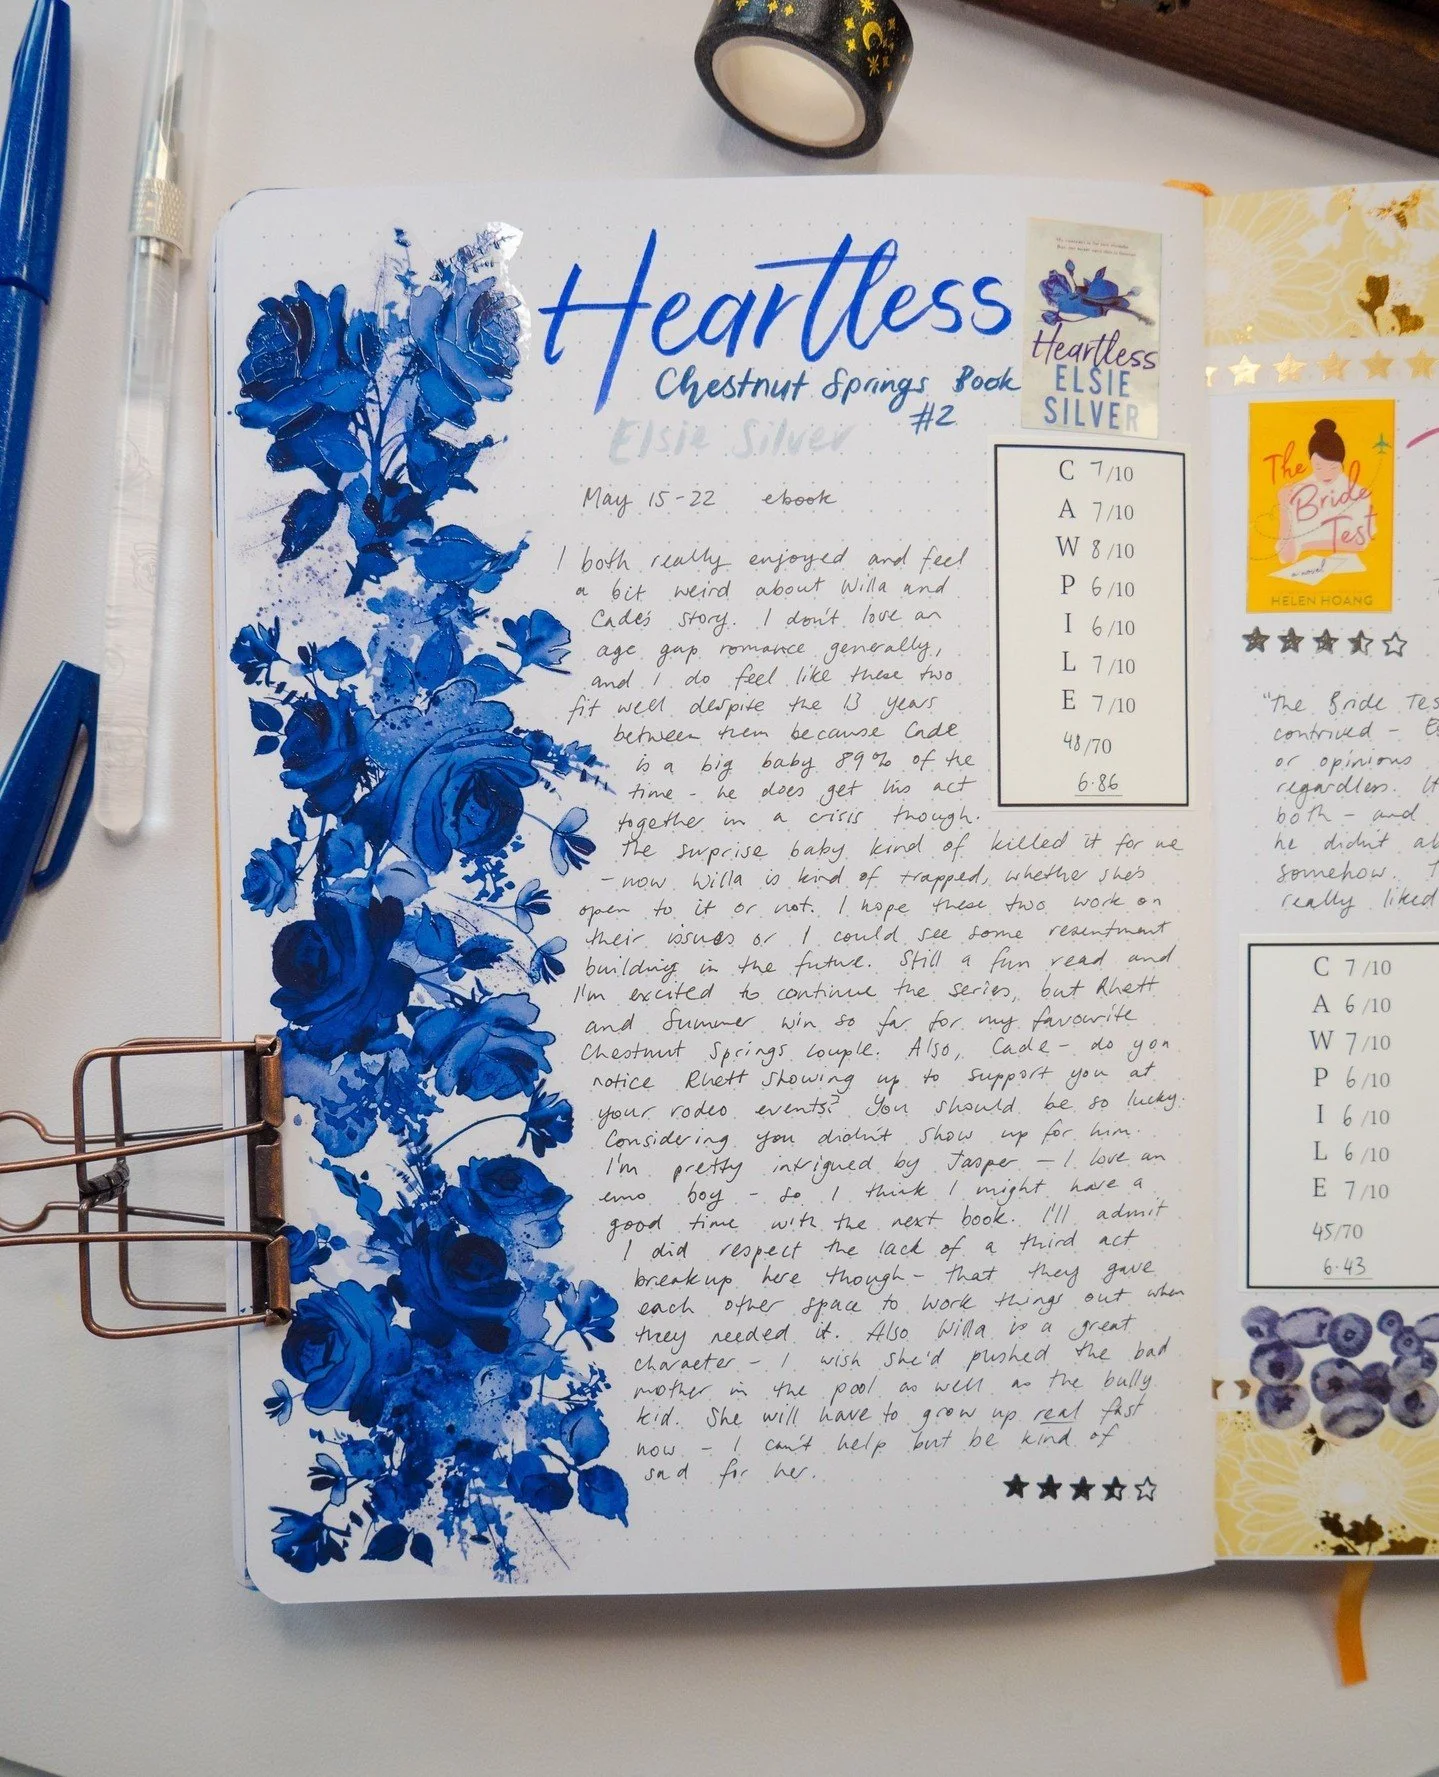 Heartless
Chestnut Springs Book
#2
Elsie Silver
May 15-22 ebook
I both really enjoyed and feel
a bit weird about Willa and
Cade's story. I don't love an
age gap romance generally,
and I do feel like these two
fit well despite the 13 years
between them because Cade
is a big baby 89% of the
time - he does get his act
together in a crisis though.
The surprise baby kind of killed it for me
- now Willa is kind of trapped, whether she's
open to it or not. I hope these two work on
their issues or I could see some resentment
building in the future. Still a fun read and
I'm excited to continue the series, but Rhett
and Summer win so far for my favourite
Chestnut Springs couple. Also, Cade - do you
notice Rhett showing up to support you at
your rodeo events? You should be so lucky.
Considering you didn't show up for him.
I'm pretty intrigued by Jasper - I love an
emo boy - so I think I might have a
good time with the next book. I'll admit
I did respect the lack of a third act
breakup here though - that they gave
each other space to work things out when
they needed it. Also Willa is a great
character - I wish she'd pushed the bad
mother in the pool as well as the bully
kid. She will have to grow up real fast
now - I can't help but be kind of
sad for her.
Heartless
ELSIE
SILVER
C 7/10
A 7/10
W 8/10
P 6/10
I 6/10
L 7/10
E 7/10
48/70
6.86
The
Bride
Test
a novel
HELEN HOANG
"The Bride Tes
contrived -
or opinions
regardless. It
both - and
he didn't al
somehow.
really liked
C 7/10
A 6/10
W 7/10
P 6/10
I 6/10
L 6/10
E 7/10
45/70
6.43